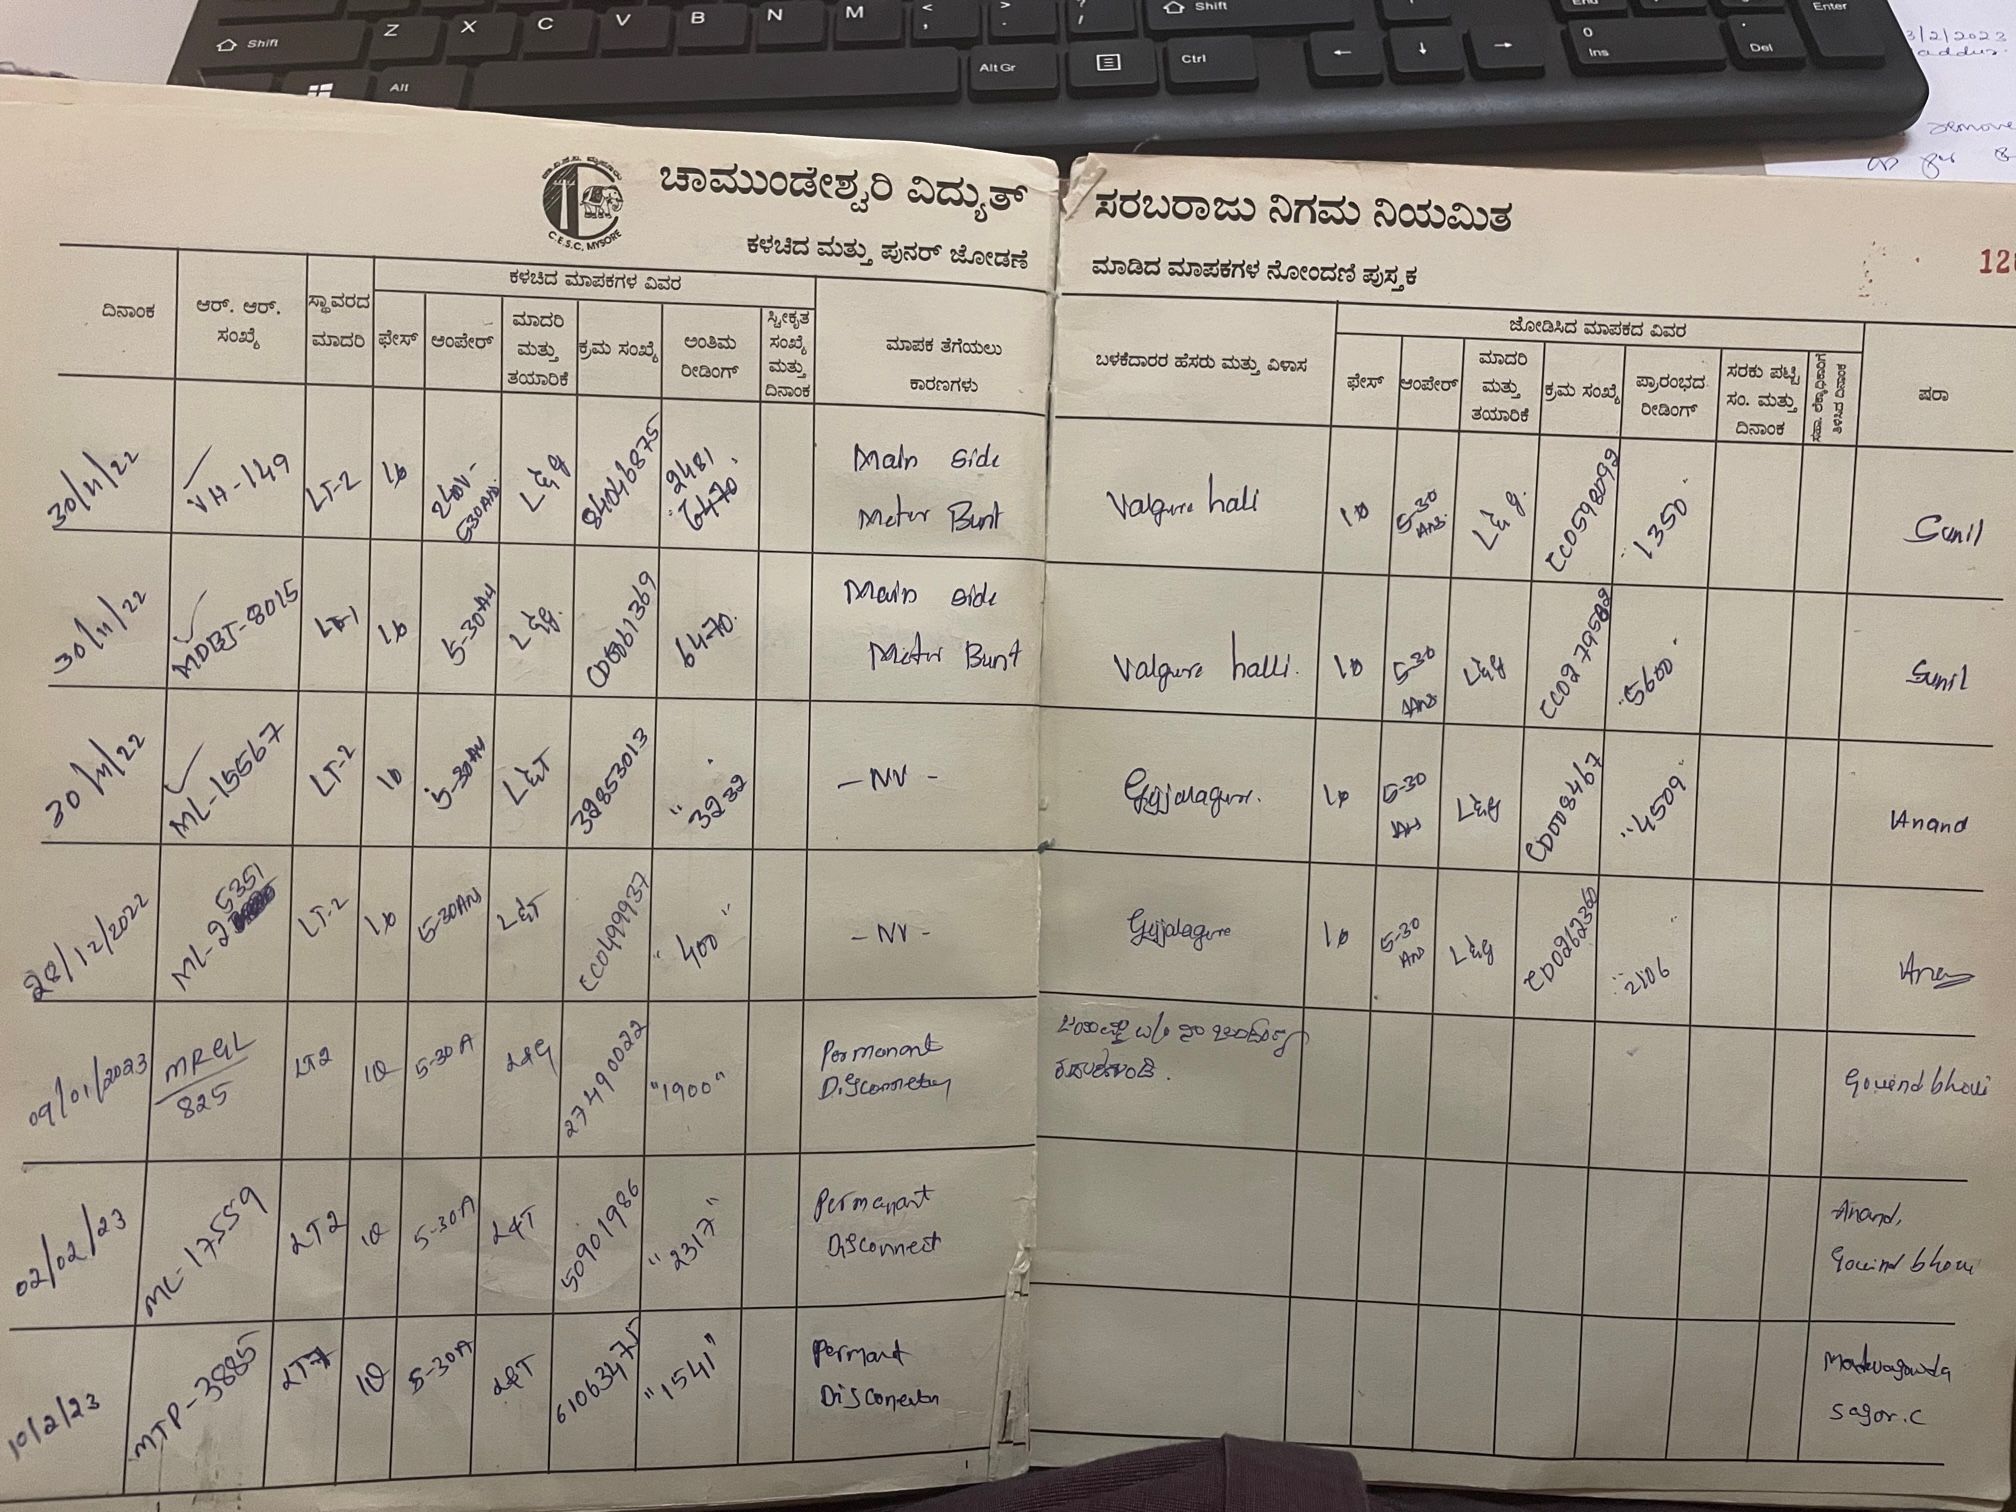 Shift Z X C V B N M < , > . ? / Shift
Alt Alt Gr Ctrl ← ↓ → 0 Ins . Del Enter
3/2/2023
C.E.S.C. MYSORE
ಚಾಮುಂಡೇಶ್ವರಿ ವಿದ್ಯುತ್ ಸರಬರಾಜು ನಿಗಮ ನಿಯಮಿತ
ಕಳಚಿದ ಮತ್ತು ಪುನರ್ ಜೋಡಣೆ ಮಾಡಿದ ಮಾಪಕಗಳ ನೋಂದಣಿ ಪುಸ್ತಕ
ದಿನಾಂಕ
ಆರ್. ಆರ್. ಸಂಖ್ಯೆ
ಸ್ಥಾವರದ ಮಾದರಿ
ಕಳಚಿದ ಮಾಪಕಗಳ ವಿವರ
ಫೇಸ್
ಆಂಪೇರ್
ಮಾದರಿ ಮತ್ತು ತಯಾರಿಕೆ
ಕ್ರಮ ಸಂಖ್ಯೆ
ಅಂತಿಮ ರೀಡಿಂಗ್
ಸ್ವೀಕೃತ ಸಂಖ್ಯೆ ಮತ್ತು ದಿನಾಂಕ
ಮಾಪಕ ತೆಗೆಯಲು ಕಾರಣಗಳು
ಬಳಕೆದಾರರ ಹೆಸರು ಮತ್ತು ವಿಳಾಸ
ಜೋಡಿಸಿದ ಮಾಪಕದ ವಿವರ
ಫೇಸ್
ಆಂಪೇರ್
ಮಾದರಿ ಮತ್ತು ತಯಾರಿಕೆ
ಕ್ರಮ ಸಂಖ್ಯೆ
ಪ್ರಾರಂಭದ ರೀಡಿಂಗ್
ಸರಕು ಪಟ್ಟಿ ಸಂ. ಮತ್ತು ದಿನಾಂಕ
ಸಹಾ. ಲೆಕ್ಕಾಧಿಕಾರಿಗೆ ತಿಳಿಸಿದ ದಿನಾಂಕ
ಷರಾ
30/11/22 VH-149 LT-2 1ø 240V- 5-30AM L&G 84046875 2481 6470 Main side Meter Bunt Valgure hali 1ø 5-30 L&G CC0598092 1350 Sunil
30/11/22 MDBJ-8015 LT-1 1ø 5-30AM L&G 6470 Main side Meter Bunt Valgure halli. 1ø 5-30 L&G CC0279582 "5600" Sunil
30/11/22 ML-15567 LT-2 1ø 5-30AM L&T 32853013 "3232" -NV- Gujjalagure. 1ø 5-30 L&G CD008467 "4509" Anand
28/12/2022 ML-25351 LT-2 1ø 5-30AM L&T CC0499937 "400" -NV- Gujjalagure 1ø 5-30 L&G CD0262350 "2106"
09/01/2023 MRGL/825 LT2 1Ø 5-30A L&G 27490022 "1900" Permanant Govind bhovi
02/02/23 ML-17559 LT2 1Ø 5-30A L&T 50901986 "2317" Permanant Disconnect Anand, Govind bhovi
10/2/23 MTP-3885 LT7 1Ø 5-30A L&T 61063475 "1541" Permant Madevagowda Sagor.C